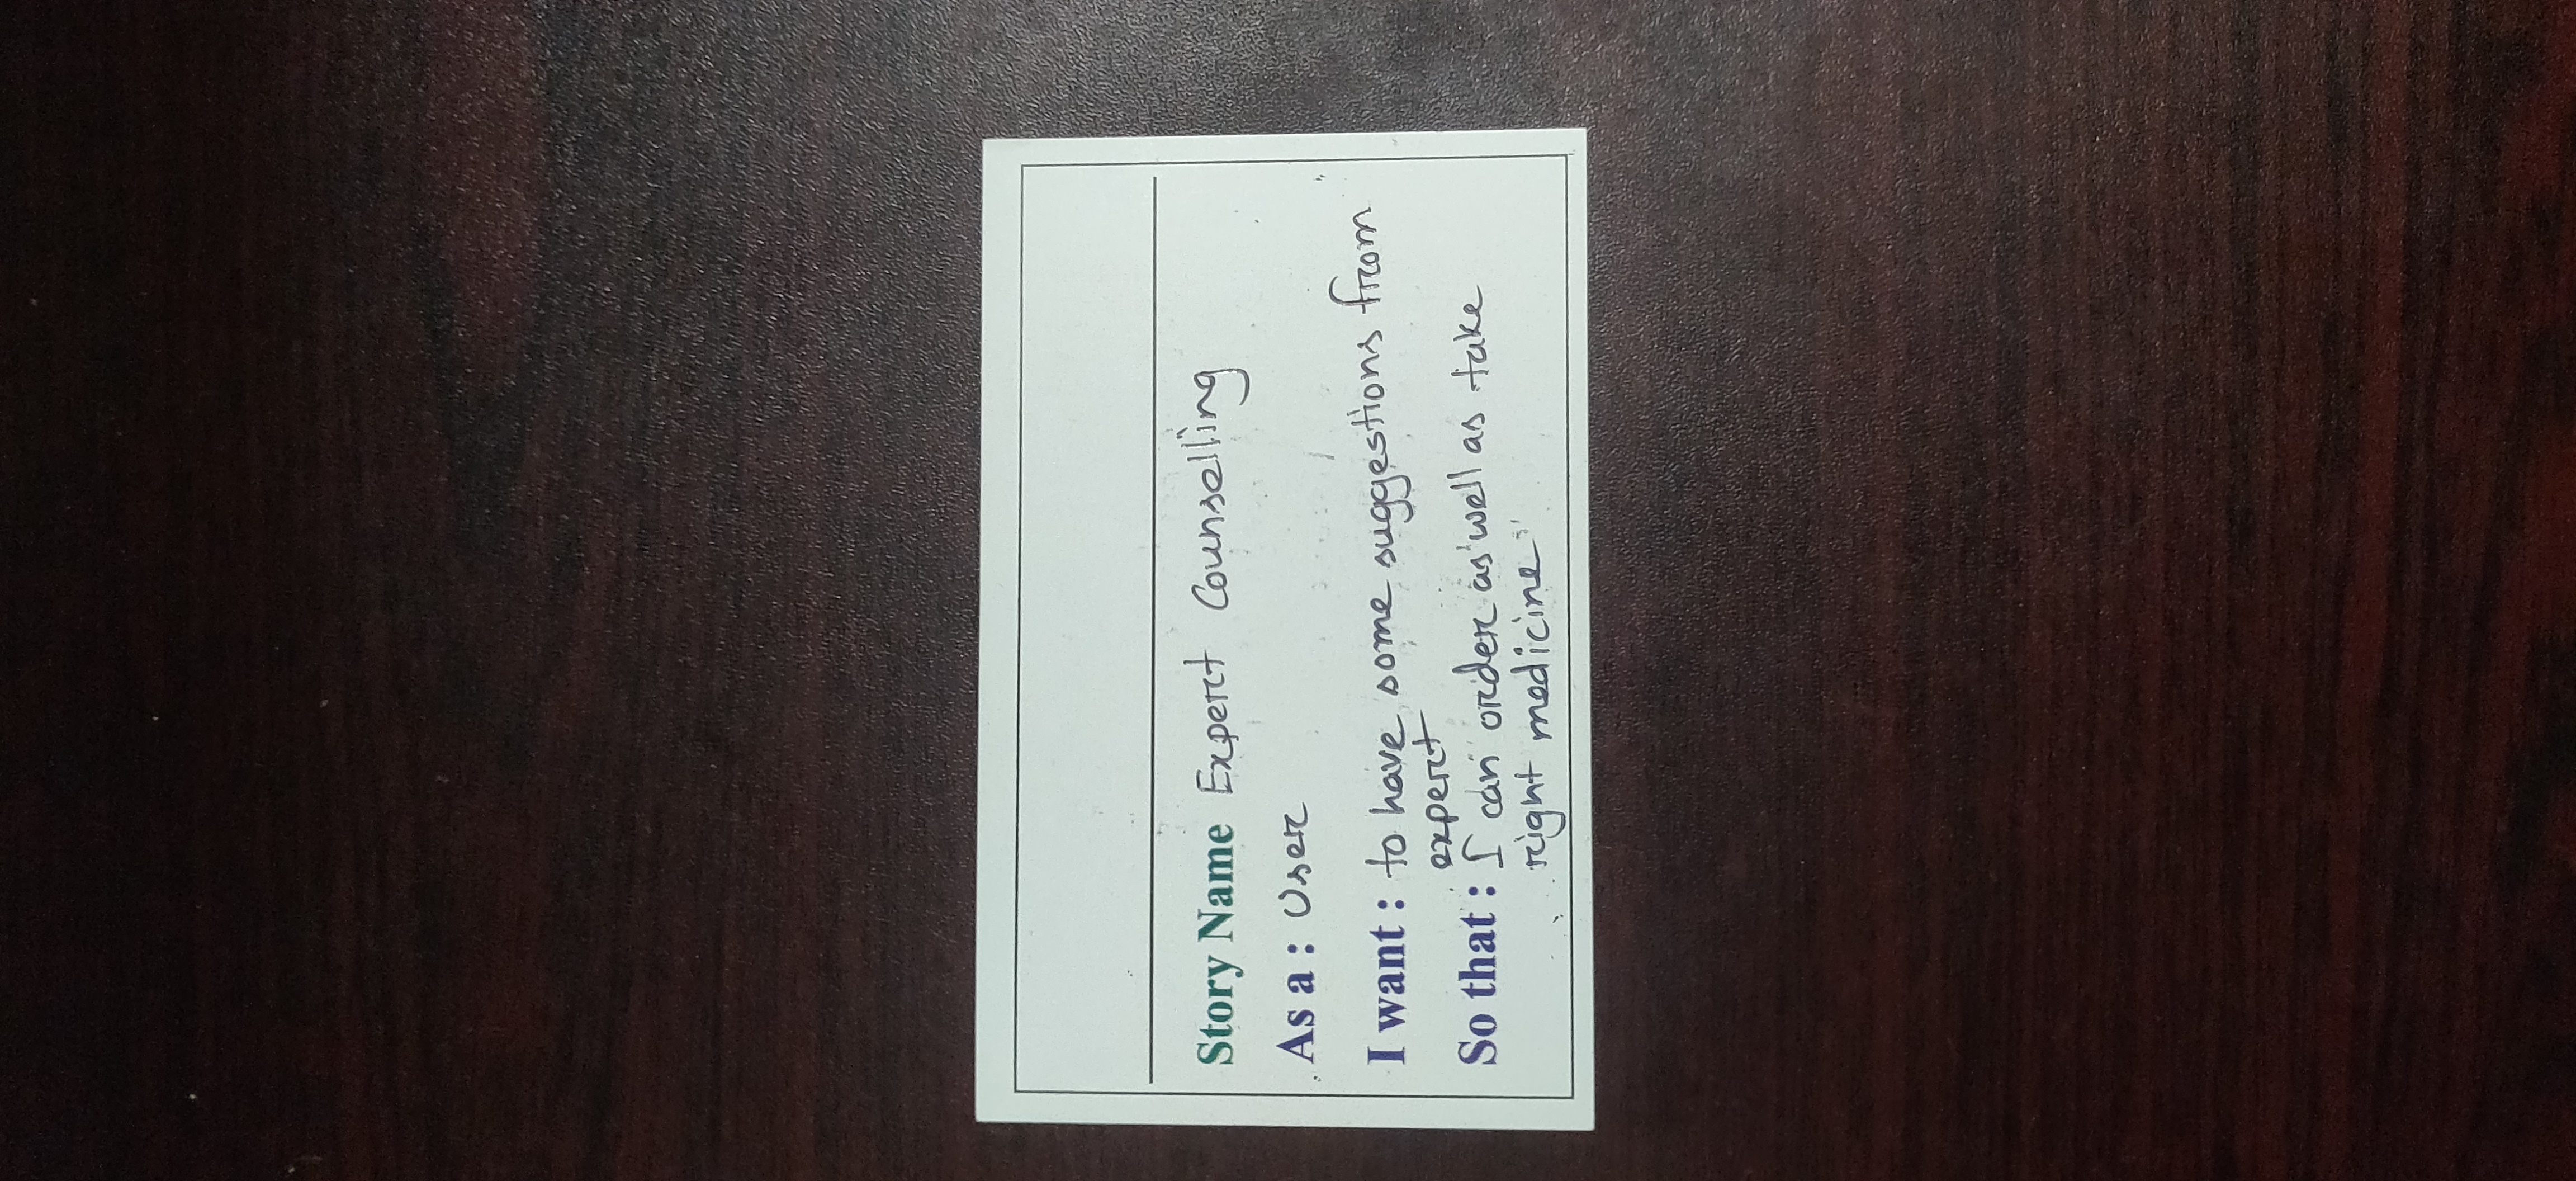 Story Name Expert Counselling
As a : User
I want : to have some suggestions from
expert
So that : I can order as well as take
right medicine